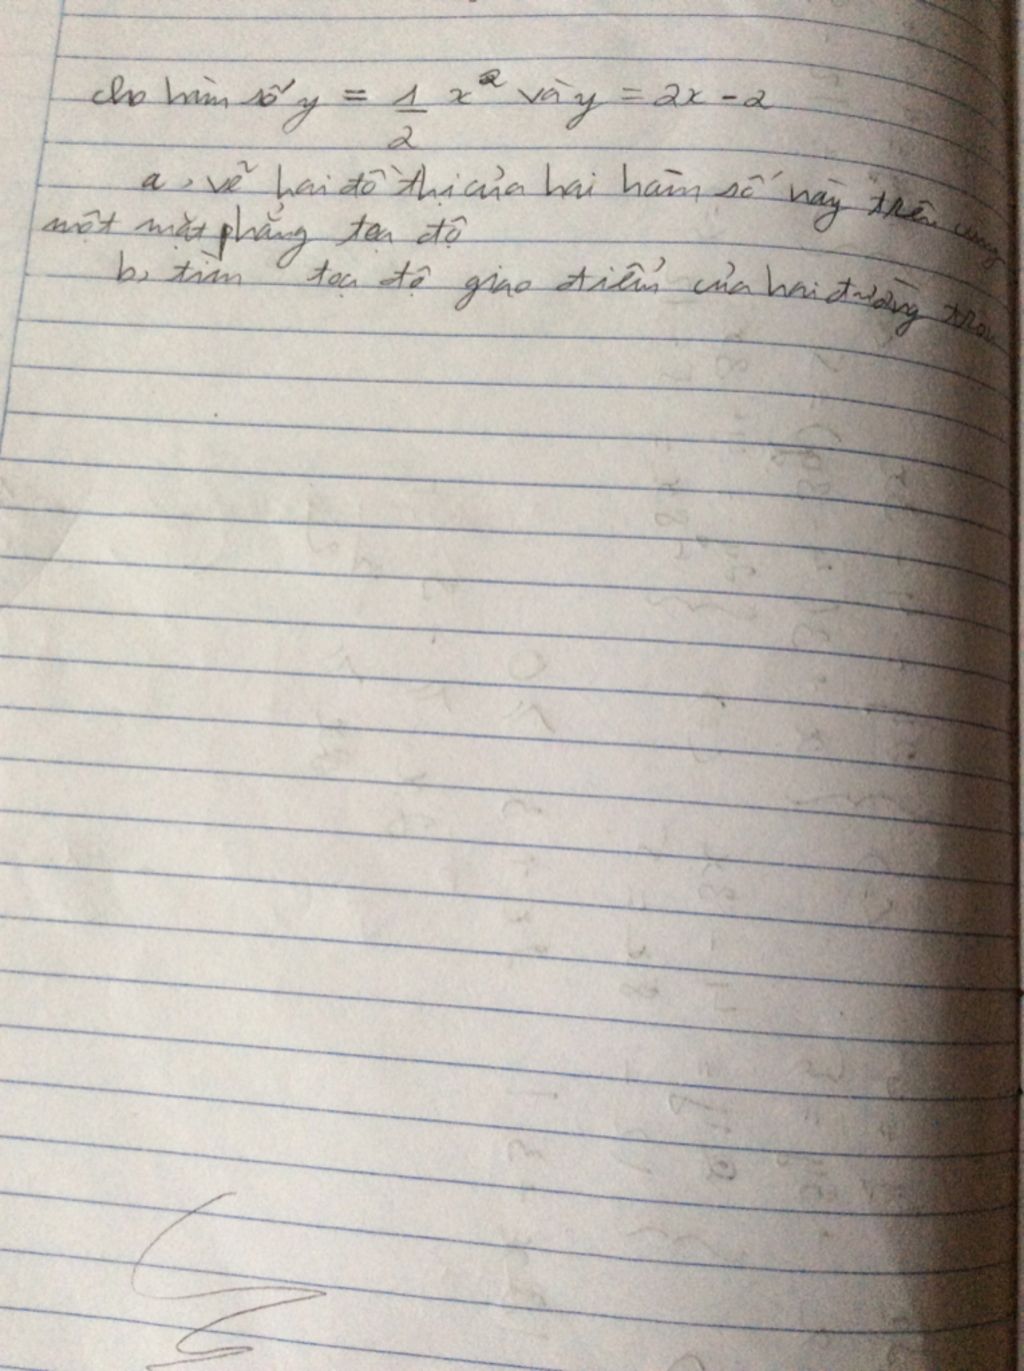 cho hàm số y = 1/2 x² và y = 2x - 2
a, vẽ hai đồ thị của hai hàm số này trên cùng
một mặt phẳng tọa độ
b, tìm tọa độ giao điểm của hai đường trên